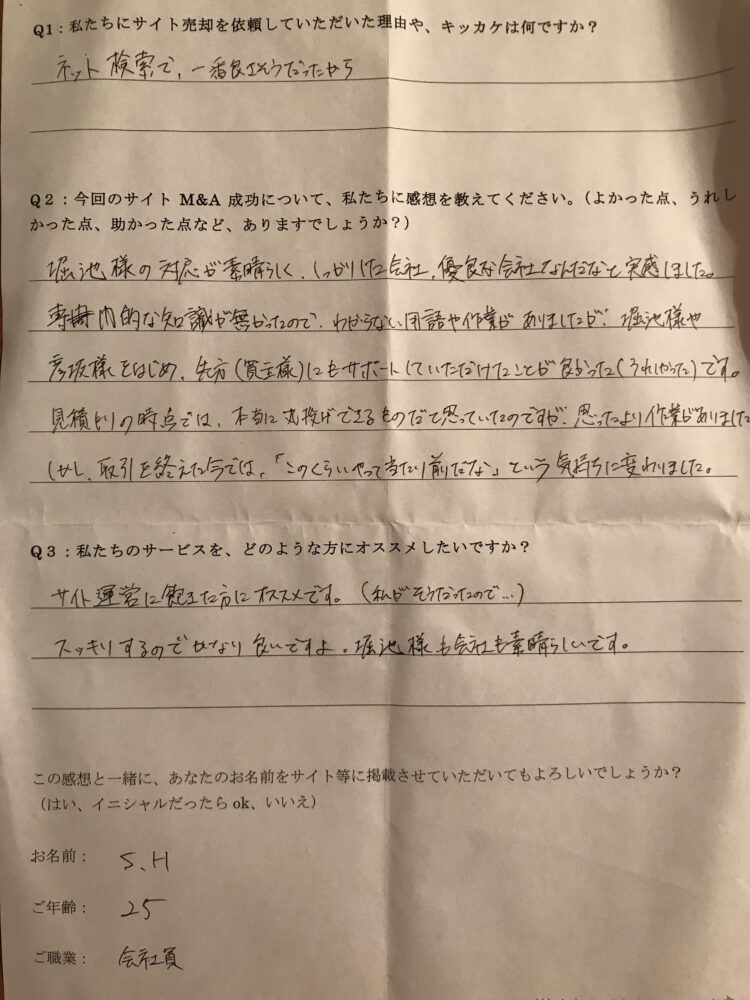 Q1：私たちにサイト売却を依頼していただいた理由や、キッカケは何ですか？
ネット検索で、一番良さそうだったから
Q2：今回のサイト M&A 成功について、私たちに感想を教えてください。（よかった点、うれし
かった点、助かった点など、ありますでしょうか？）
堀池様の対応が素晴らしく、しっかりした会社、優良な会社なんだなと実感しました。
専門的な知識が無かったので、わからない用語や作業がありましたが、堀池様や
彦坂様をはじめ、先方（買主様）にもサポートしていただけたことが良かった（うれしかった）です。
見積もりの時点では、本当に丸投げできるものだと思っていたのですが、思ったより作業がありました
しかし、取引を終えた今では、「このくらいやって当たり前だな」という気持ちに変わりました。
Q3：私たちのサービスを、どのような方にオススメしたいですか？
サイト運営に飽きた方にオススメです。（私がそうだったので…）
スッキリするのでかなり良いですよ。堀池様も会社も素晴らしいです。
この感想と一緒に、あなたのお名前をサイト等に掲載させていただいてもよろしいでしょうか？
（はい、イニシャルだったら ok、いいえ）
お名前： S.H
ご年齢： 25
ご職業： 会社員